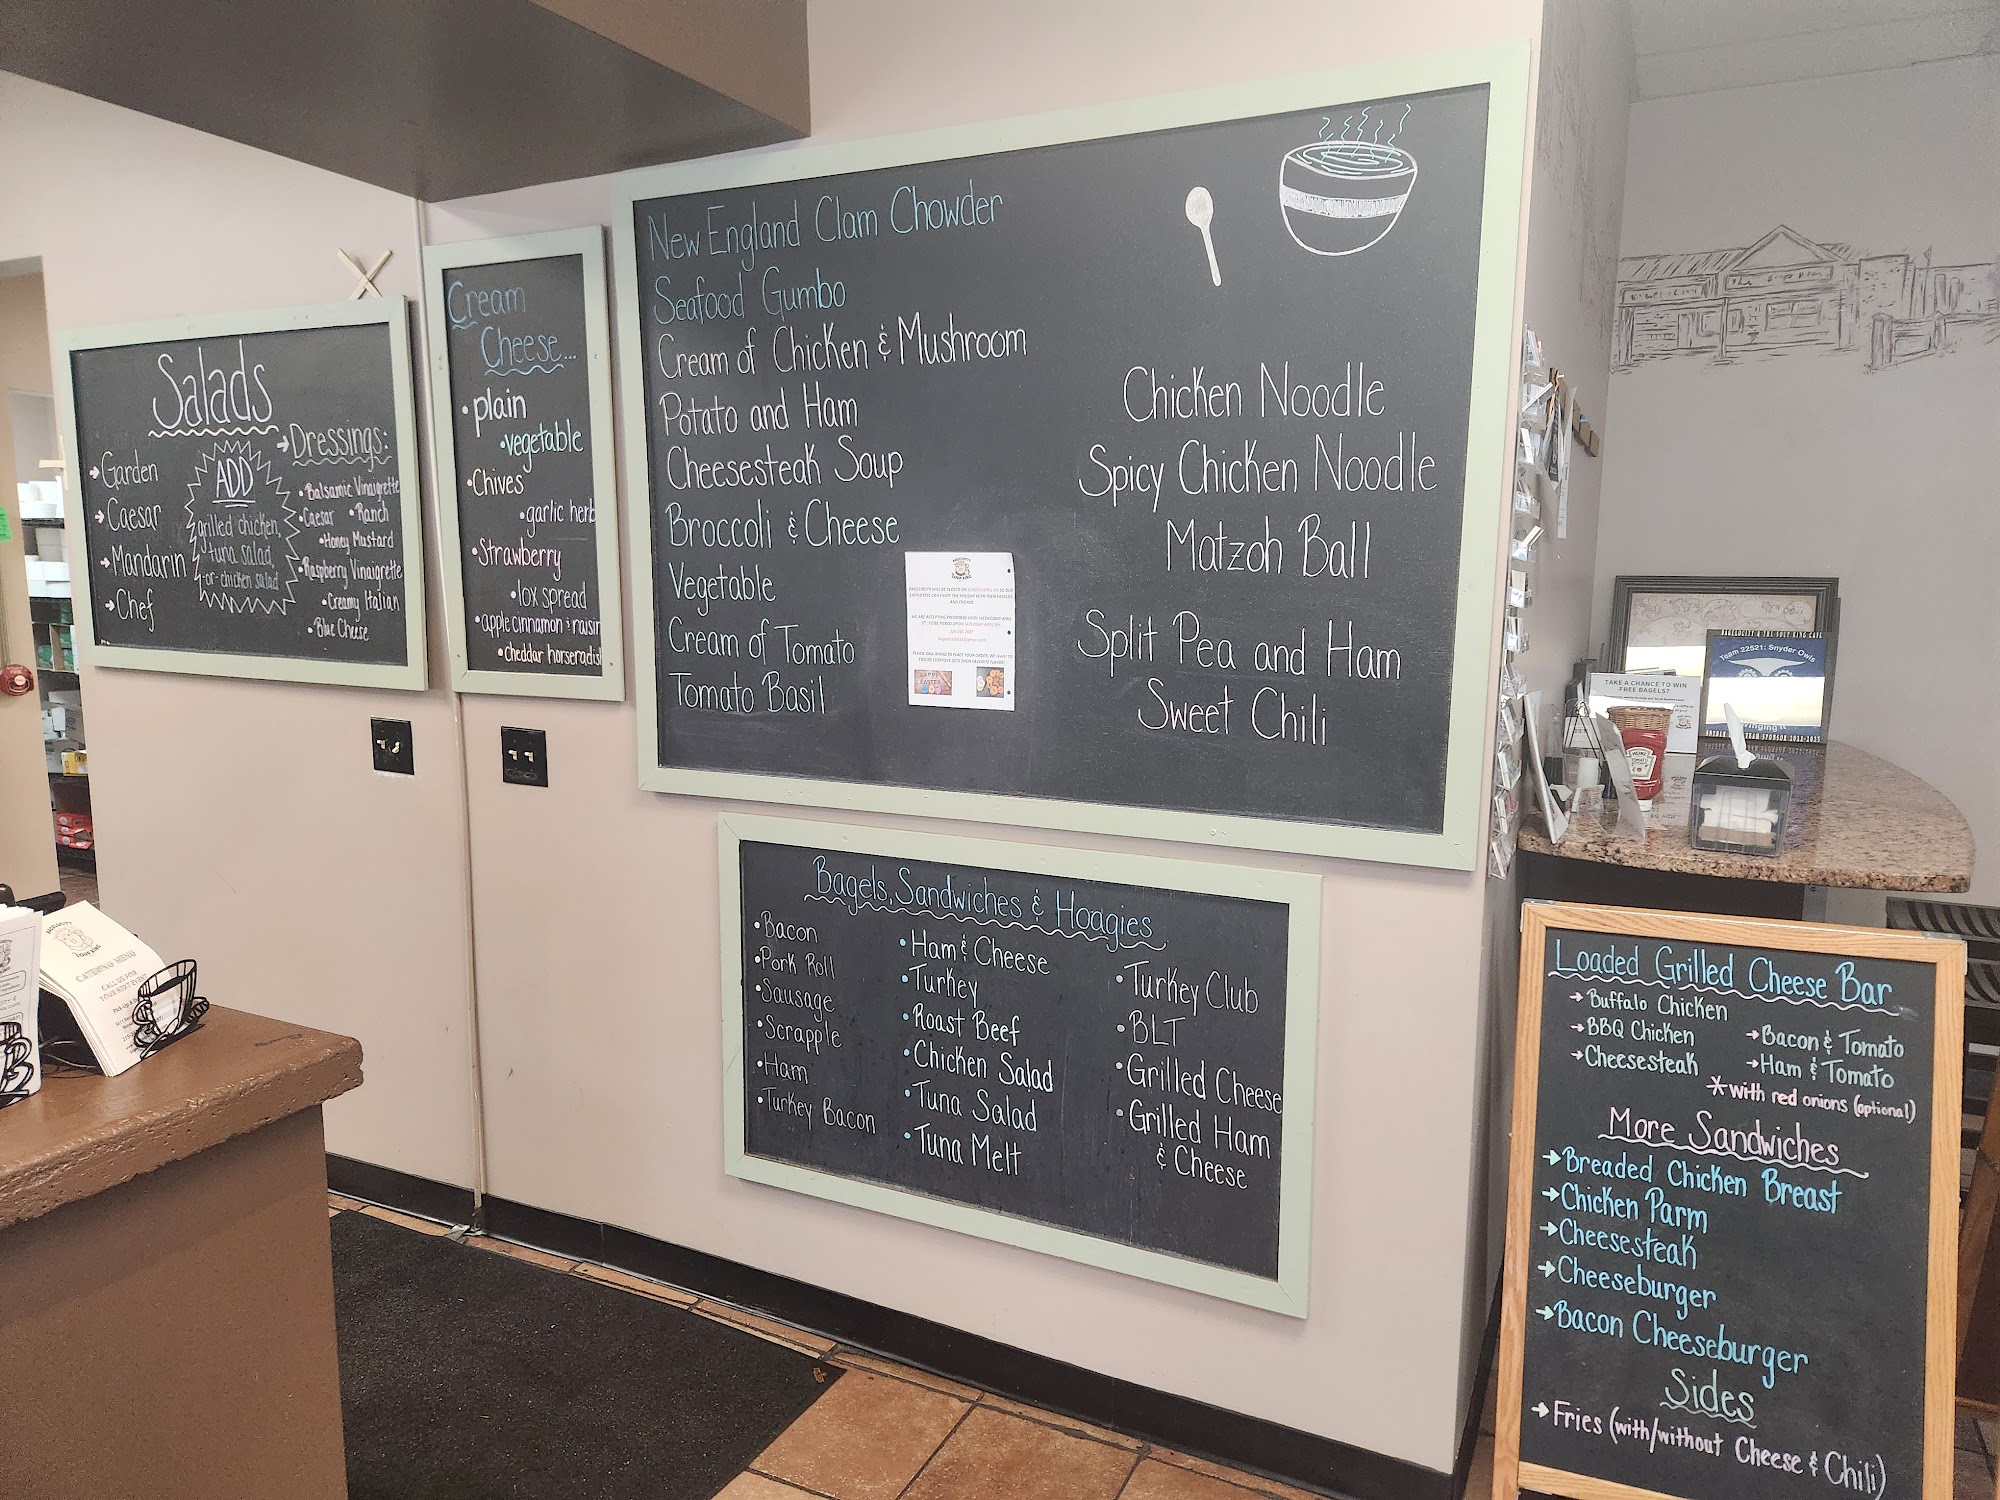 Salads
→Garden
→Caesar
→Mandarin
→Chef
ADD
grilled chicken,
tuna salad,
-or- chicken salad
→Dressings:
•Balsamic Vinaigrette
•Caesar •Ranch
•Honey Mustard
•Raspberry Vinaigrette
•Creamy Italian
•Blue Cheese
Cream
Cheese...
•plain
•vegetable
•Chives
•garlic herb
•Strawberry
•lox spread
•apple cinnamon & raisin
•cheddar horseradish
New England Clam Chowder
Seafood Gumbo
Cream of Chicken & Mushroom
Potato and Ham
Cheesesteak Soup
Broccoli & Cheese
Vegetable
Cream of Tomato
Tomato Basil
Chicken Noodle
Spicy Chicken Noodle
Matzoh Ball
Split Pea and Ham
Sweet Chili
Bagels, Sandwiches & Hoagies
•Bacon
•Pork Roll
•Sausage
•Scrapple
•Ham
•Turkey Bacon
•Ham & Cheese
•Turkey
•Roast Beef
•Chicken Salad
•Tuna Salad
•Tuna Melt
•Turkey Club
•BLT
•Grilled Cheese
•Grilled Ham
& Cheese
Loaded Grilled Cheese Bar
→Buffalo Chicken
→BBQ Chicken
→Cheesesteak
→Bacon & Tomato
→Ham & Tomato
*with red onions (optional)
More Sandwiches
→Breaded Chicken Breast
→Chicken Parm
→Cheesesteak
→Cheeseburger
→Bacon Cheeseburger
Sides
→Fries (with/without Cheese & Chili)
TAKE A CHANCE TO WIN
FREE BAGELS?
BAGELOCITY & THE SOUP KING CAFE
Team 22521: Snyder Owls
HEINZ
TOMATO
CATERING MENU
CALL US FOR
YOUR NEXT EVENT
HAPPY
EASTER